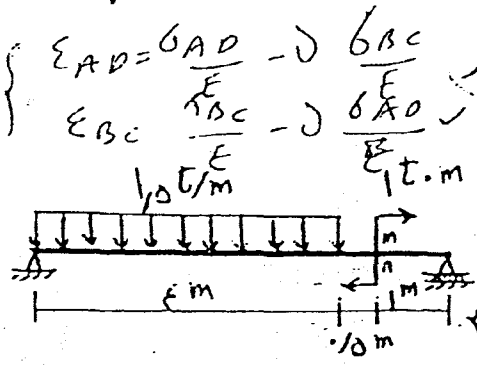 ε_AD = σ_AD/E - ν σ_BC/E
ε_BC σ_BC/E - ν σ_AD/E ✓
۱,۵ t/m ۱ t.m
m
n
۴ m ۱ m
۰/۵ m